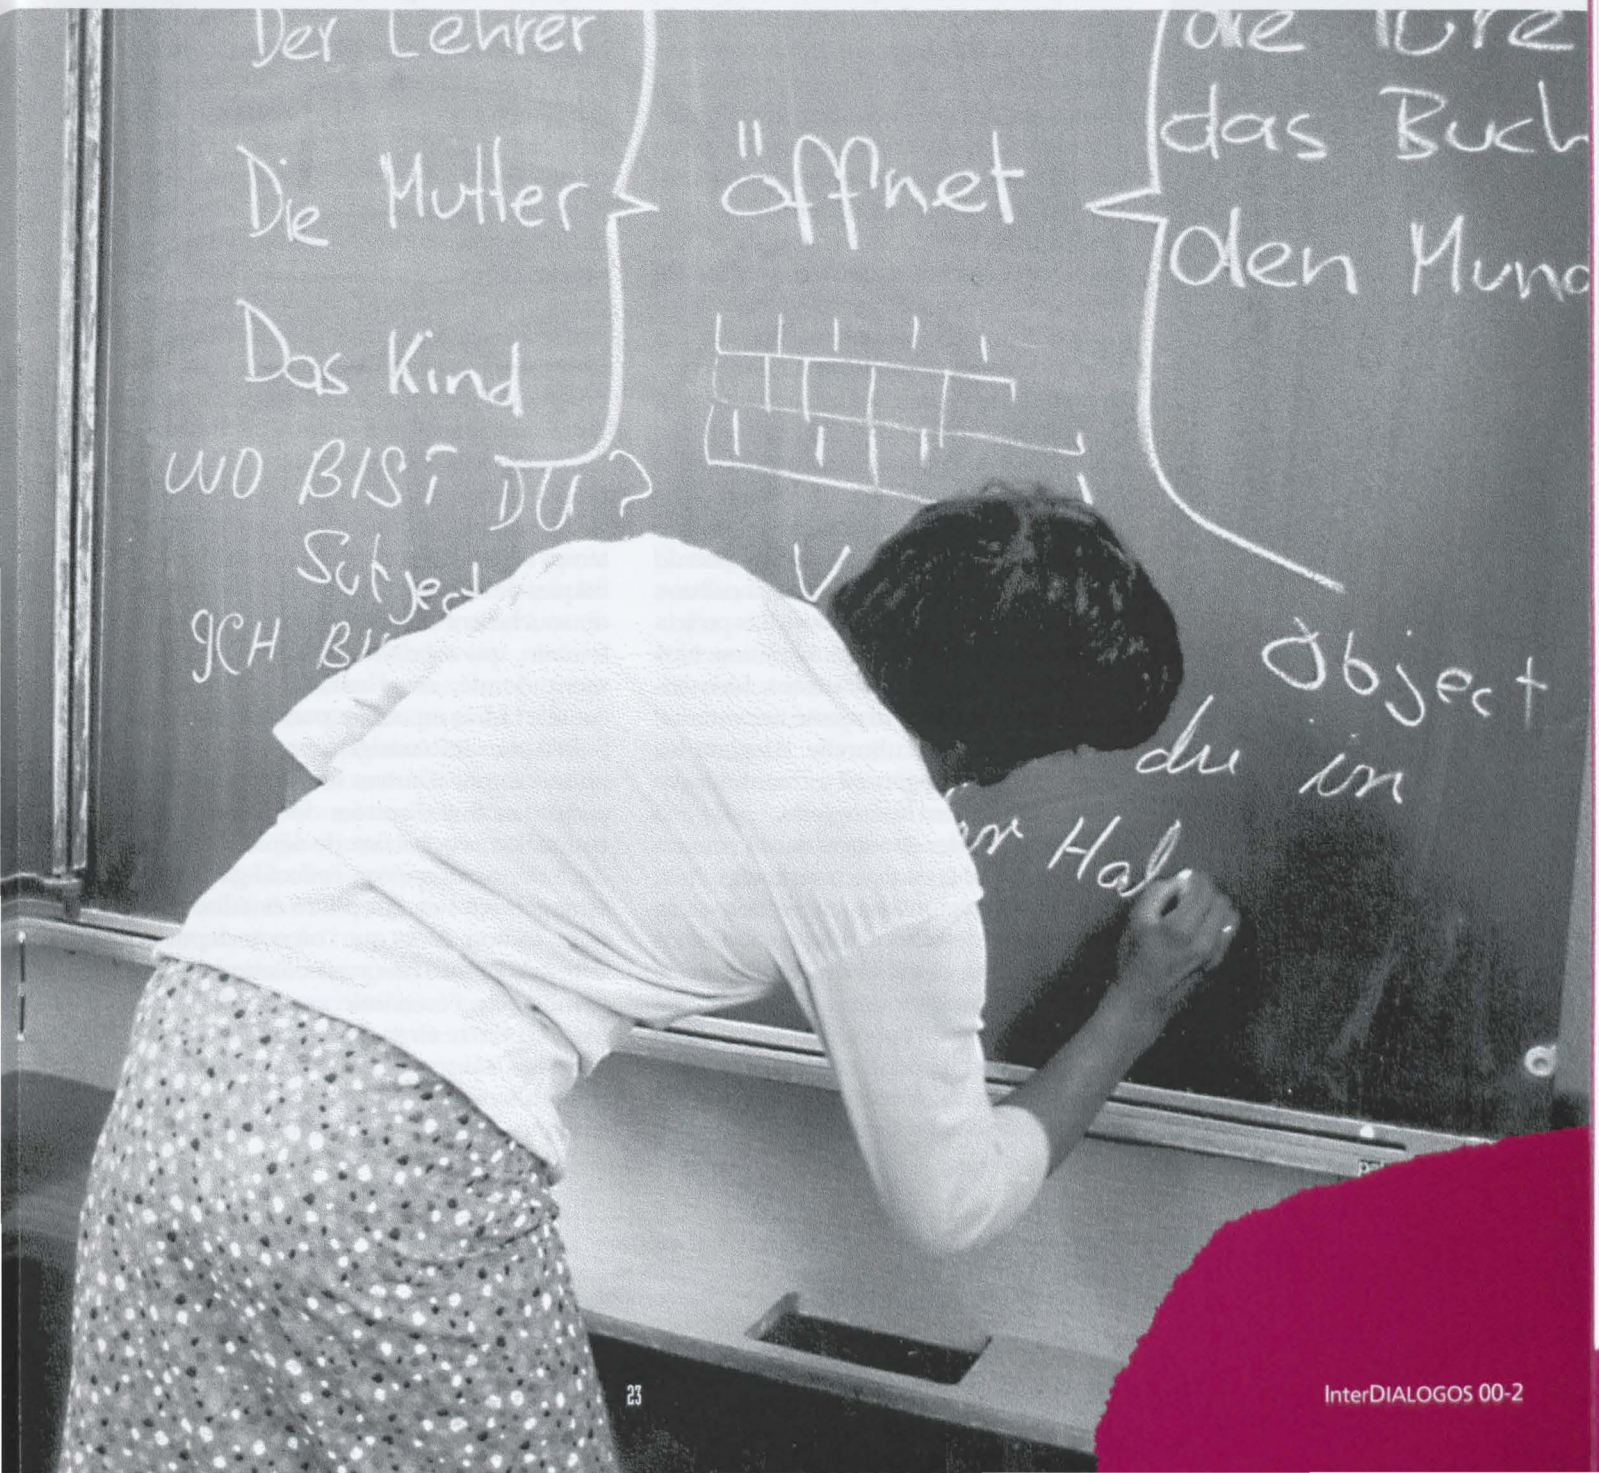 Der Lehrer
Die Mutter
Das Kind
öffnet
die Türe
das Buch
den Mund
WO BIST DU?
Subject
ICH
V
Object
du in
er Hal
23
InterDIALOGOS 00-2